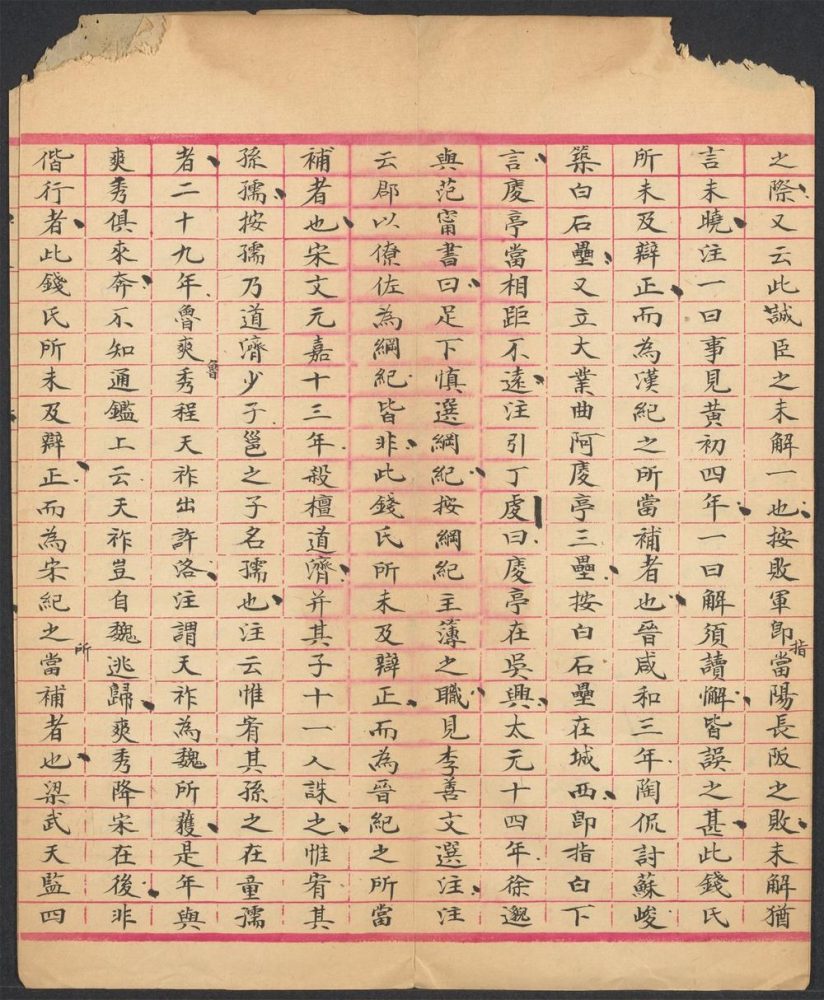 之際又云此誠臣之未解一也按敗軍即指當陽長阪之敗未解猶
言未曉注一曰事見黃初四年一曰解須讀懈皆誤之甚此錢氏
所未及辯正而為漢紀之所當補者也晉咸和三年陶侃討蘇峻
築白石壘又立大業曲阿庱亭三壘按白石壘在城西即指白下
言庱亭當相距不遠注引丁度曰庱亭在吳興太元十四年徐邈
與范甯書曰足下慎選綱紀按綱紀主簿之職見李善文選注注
云郡以僚佐為綱紀皆非此錢氏所未及辯正而為晉紀之所當
補者也宋文元嘉十三年殺檀道濟并其子十一人誅之惟宥其
孫孺按孺乃道濟少子邕之子名孺也注云惟宥其孫之在童孺
者二十九年魯爽魯秀程天祚出許洛注謂天祚為魏所獲是年與
爽秀俱來奔不知通鑑上云天祚豈自魏逃歸爽秀降宋在後非
偕行者此錢氏所未及辯正而為宋紀之所當補者也梁武天監四